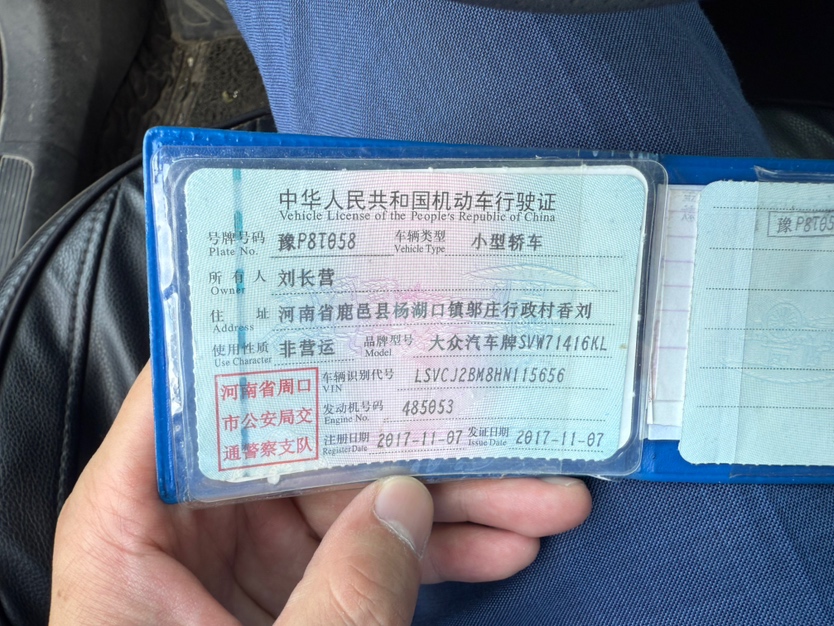 中华人民共和国机动车行驶证
Vehicle License of the People's Republic of China
号牌号码 豫P8T058 车辆类型 小型轿车
Plate No. Vehicle Type
所有人 刘长营
Owner
住址 河南省鹿邑县杨湖口镇邬庄行政村香刘
Address
使用性质 非营运 品牌型号 大众汽车牌SVW71416KL
Use Character Model
车辆识别代号 LSVCJ2BM8HN115656
VIN
发动机号码 485053
Engine No.
注册日期 2017-11-07 发证日期 2017-11-07
Register Date Issue Date
河南省周口
市公安局交
通警察支队
豫P8T05